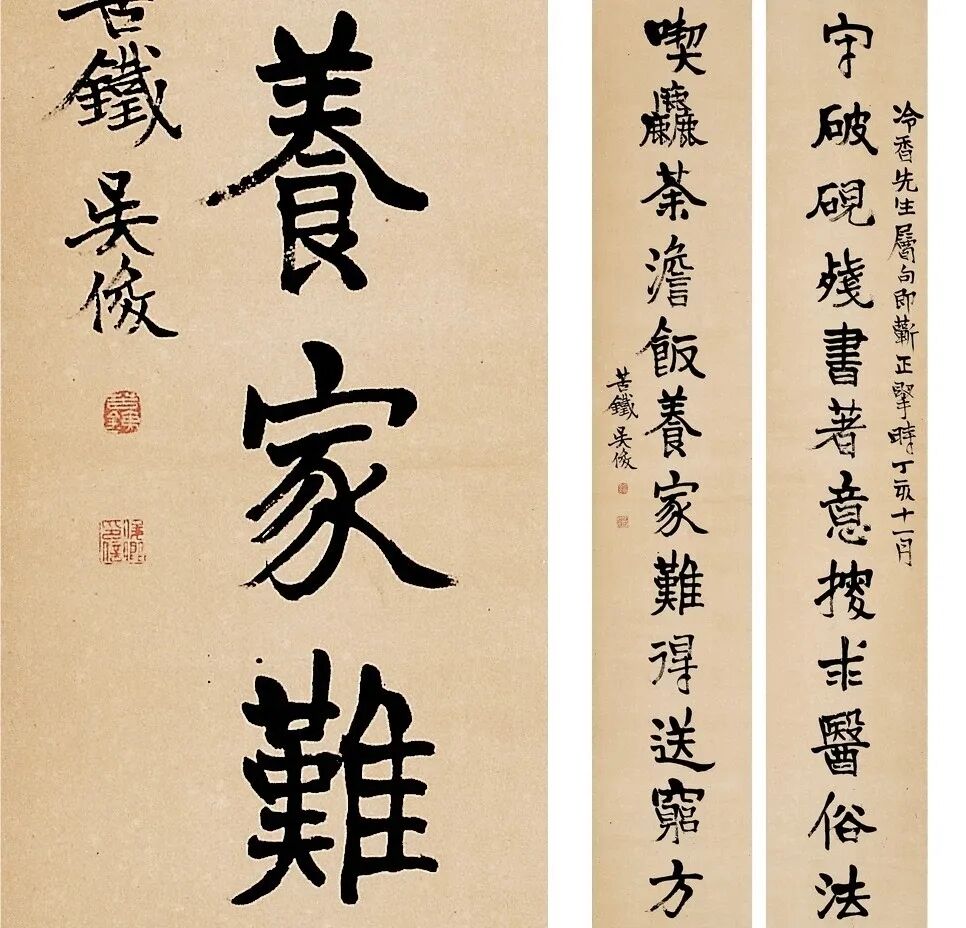 冷香先生屬句即蘄正掔時丁亥十一月
守破硯殘書著意搜求醫俗法
喫麤茶澹飯養家難得送窮方
苦鐵吳俊
養家難
苦鐵吳俊